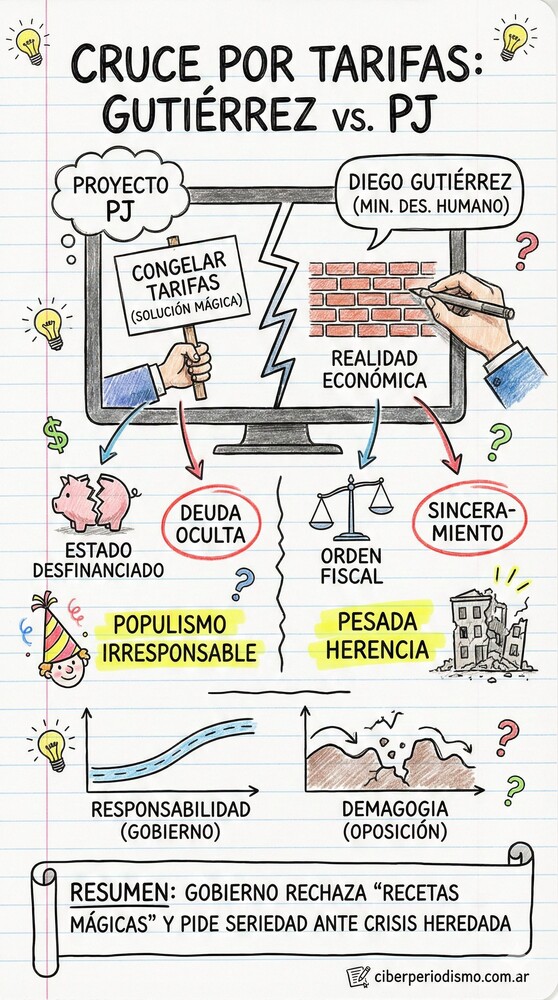 CRUCE POR TARIFAS:
GUTIÉRREZ VS. PJ
PROYECTO
PJ
DIEGO GUTIÉRREZ
(MIN. DES. HUMANO)
CONGELAR
TARIFAS
(SOLUCIÓN MÁGICA)
REALIDAD
ECONÓMICA
ESTADO
DESFINANCIADO
DEUDA
OCULTA
ORDEN
FISCAL
SINCERA-
MIENTO
POPULISMO
IRRESPONSABLE
PESADA
HERENCIA
RESPONSABILIDAD
(GOBIERNO)
DEMAGOGIA
(OPOSICIÓN)
RESUMEN: GOBIERNO RECHAZA "RECETAS
MÁGICAS" Y PIDE SERIEDAD ANTE CRISIS HEREDADA
ciberperiodismo.com.ar